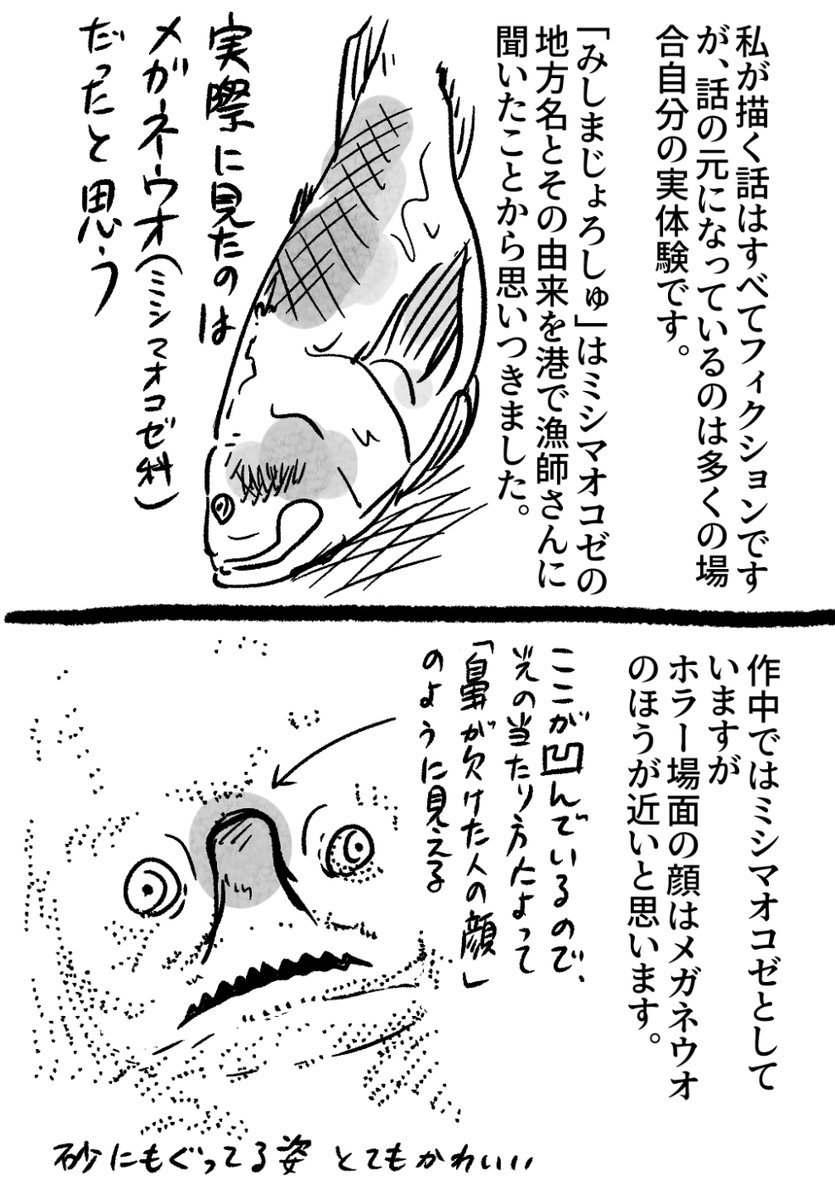 私が描く話はすべてフィクションです
が、話の元になっているのは多くの場
合自分の実体験です。
「みしまじょろしゅ」はミシマオコゼの
地方名とその由来を港で漁師さんに
聞いたことから思いつきました。
実際に見たのは
メガネウオ(ミシマオコゼ科)
だったと思う
作中ではミシマオコゼとして
いますが
ホラー場面の顔はメガネウオ
のほうが近いと思います。
ここが凹んでいるので、
光の当たり方によって
「鼻が欠けた人の顔」
のように見える
砂にもぐってる姿 とてもかわいい